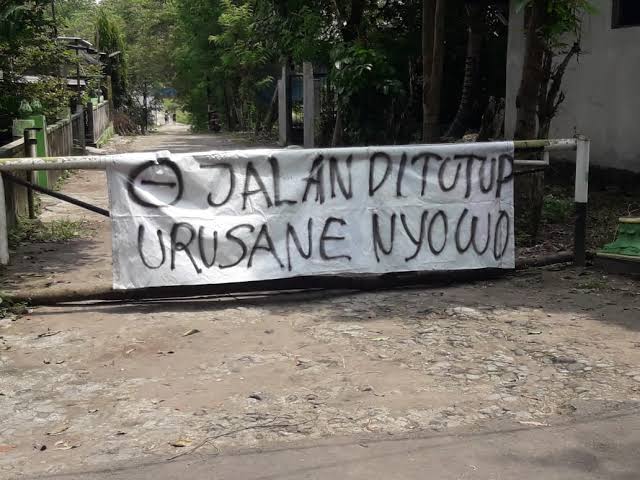 JALAN DITUTUP
URUSANE NYOWO